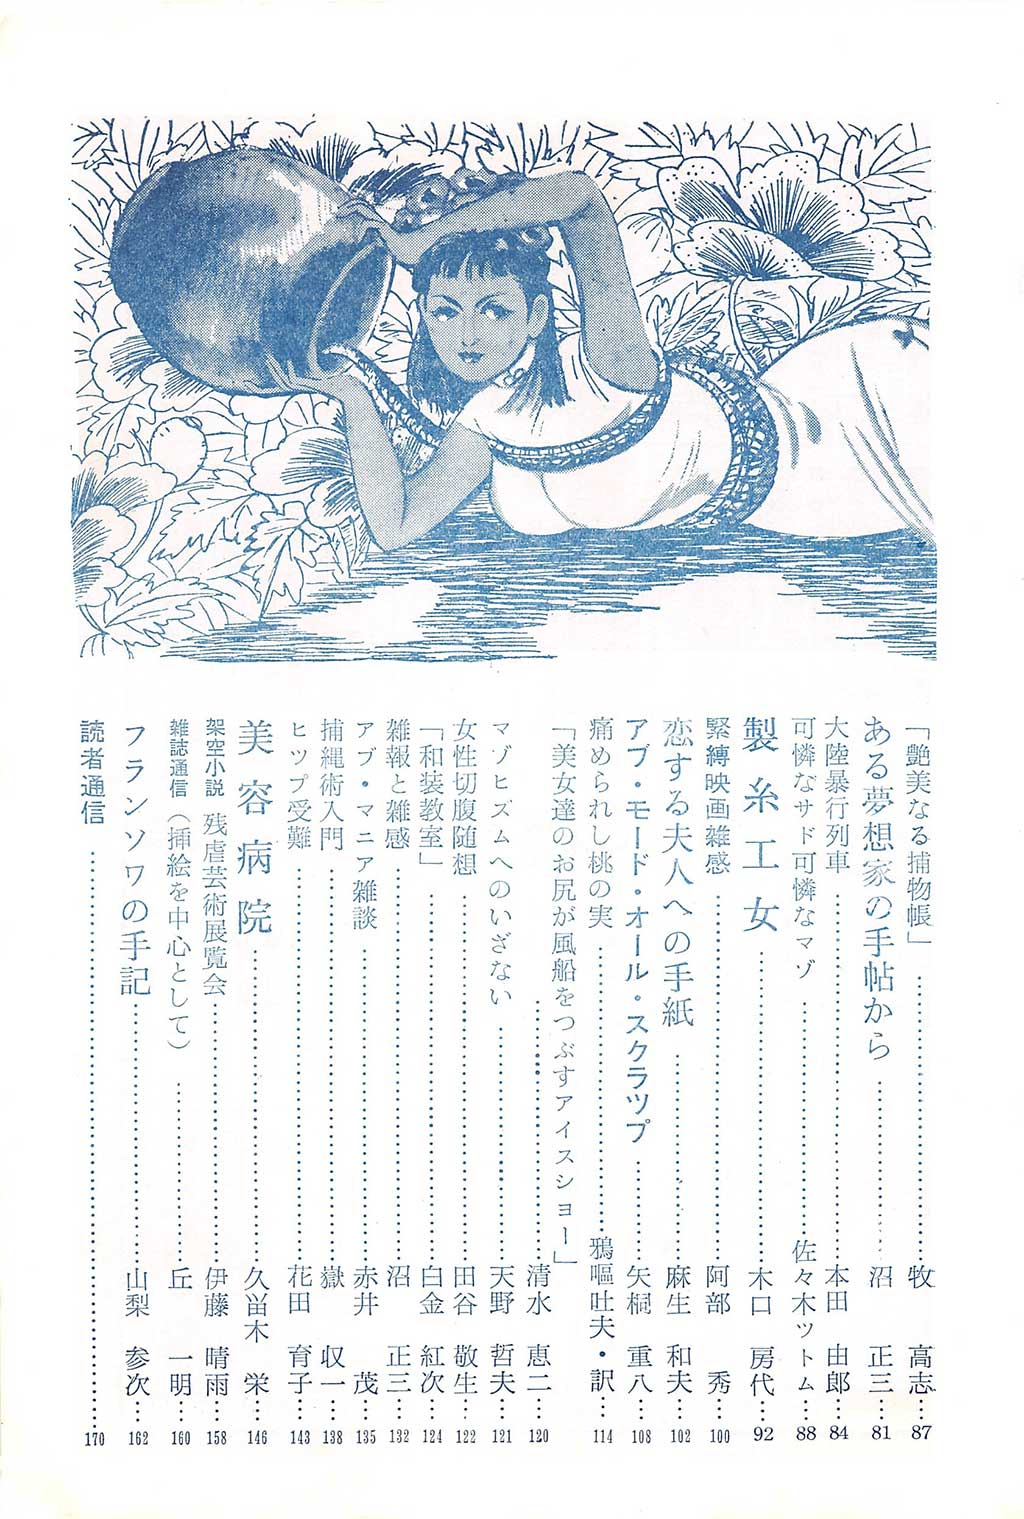 「艶美なる捕物帳」…………牧　高志…87
ある夢想家の手帖から…………沼　正三…81
大陸暴行列車…………本田　由郎…84
可憐なサド可憐なマゾ…………佐々木ツトム…88
製糸工女…………木口　房代…92
緊縛映画雑感…………阿部　秀…100
恋する夫人への手紙…………麻生　和夫…102
アブ・モード・オール・スクラツプ…………矢桐　重八…108
痛められし桃の実…………鴉嘔吐夫・訳…114
「美女達のお尻が風船をつぶすアイスショー」
…………清水　恵二…120
マゾヒズムへのいざない…………天野　哲夫…121
女性切腹随想…………田谷　敬生…122
「和装教室」…………白金　紅次…124
雑報と雑感…………沼　正三…132
アブ・マニア雑談…………赤井　茂…135
捕縄術入門…………嶽　収一…138
ヒツプ受難…………花田　育子…143
美容病院…………久留木　栄…146
架空小説　残虐芸術展覧会…………伊藤　晴雨…158
雑誌通信（挿絵を中心として）…………丘　一明…160
フランソワの手記…………山梨　参次…162
読者通信…………170